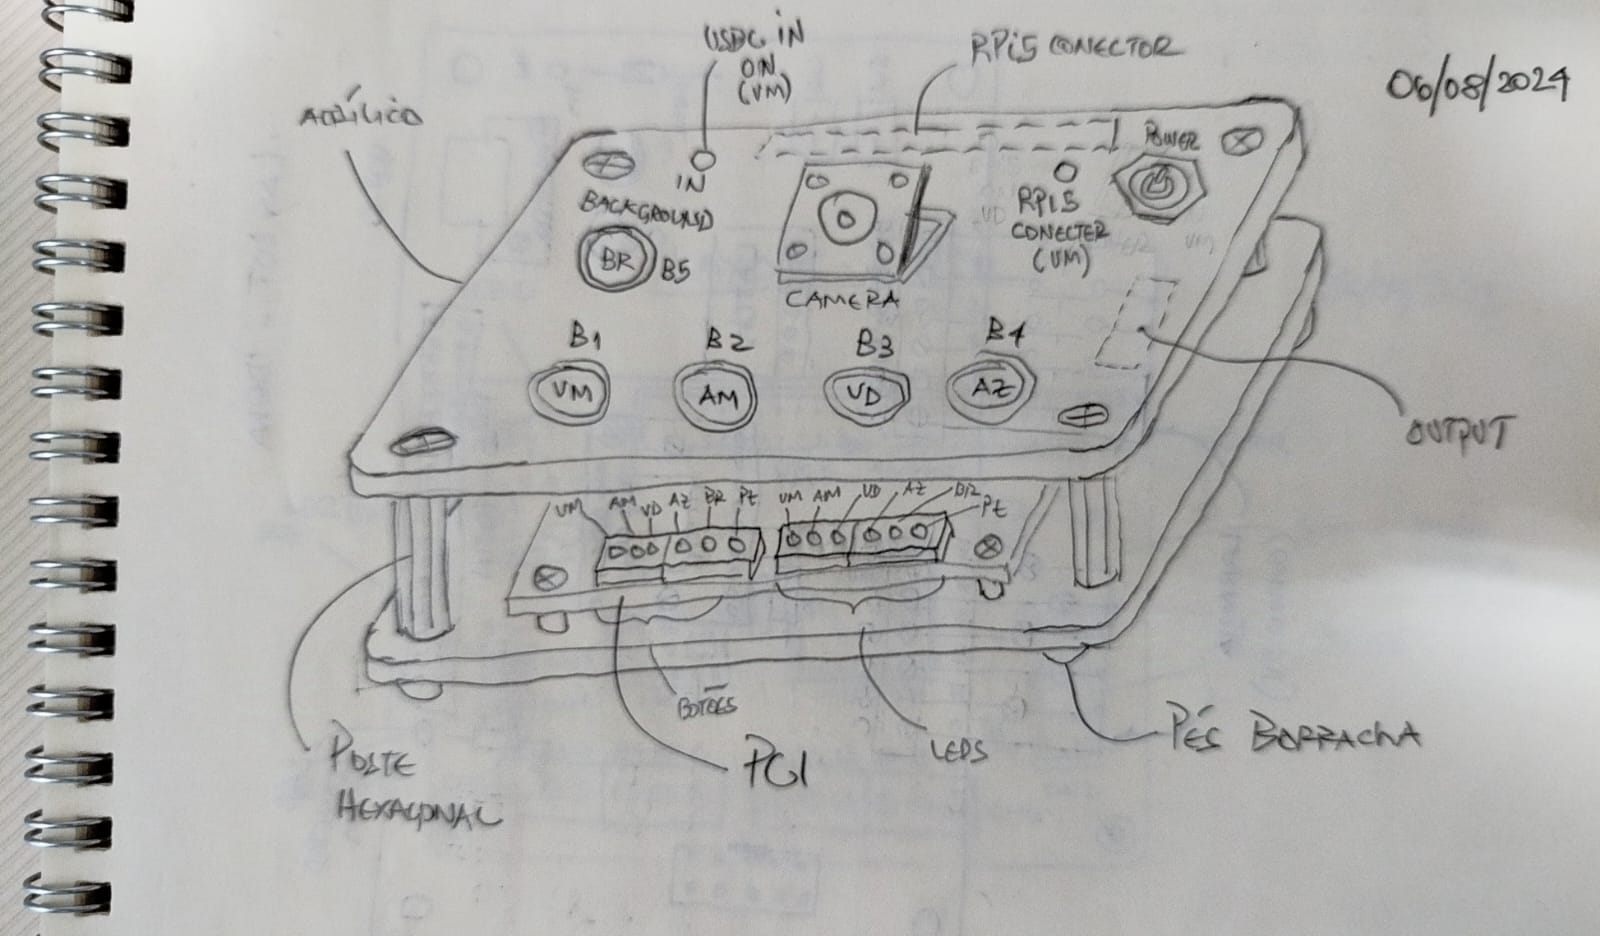 06/08/2024
USBC IN
ON
(VM)
RPi5 CONECTOR
ACRÍLICO
POWER
IN
BACKGROUND
BR B5
RPi5
CONECTER
(VM)
CAMERA
B1 B2 B3 B4
VM AM VD AZ
OUTPUT
VM AM VD AZ BR Pt VM AM VD AZ BR Pt
BOTÕES
LEDS
PCI
PÉS BORRACHA
POSTE
HEXAGONAL